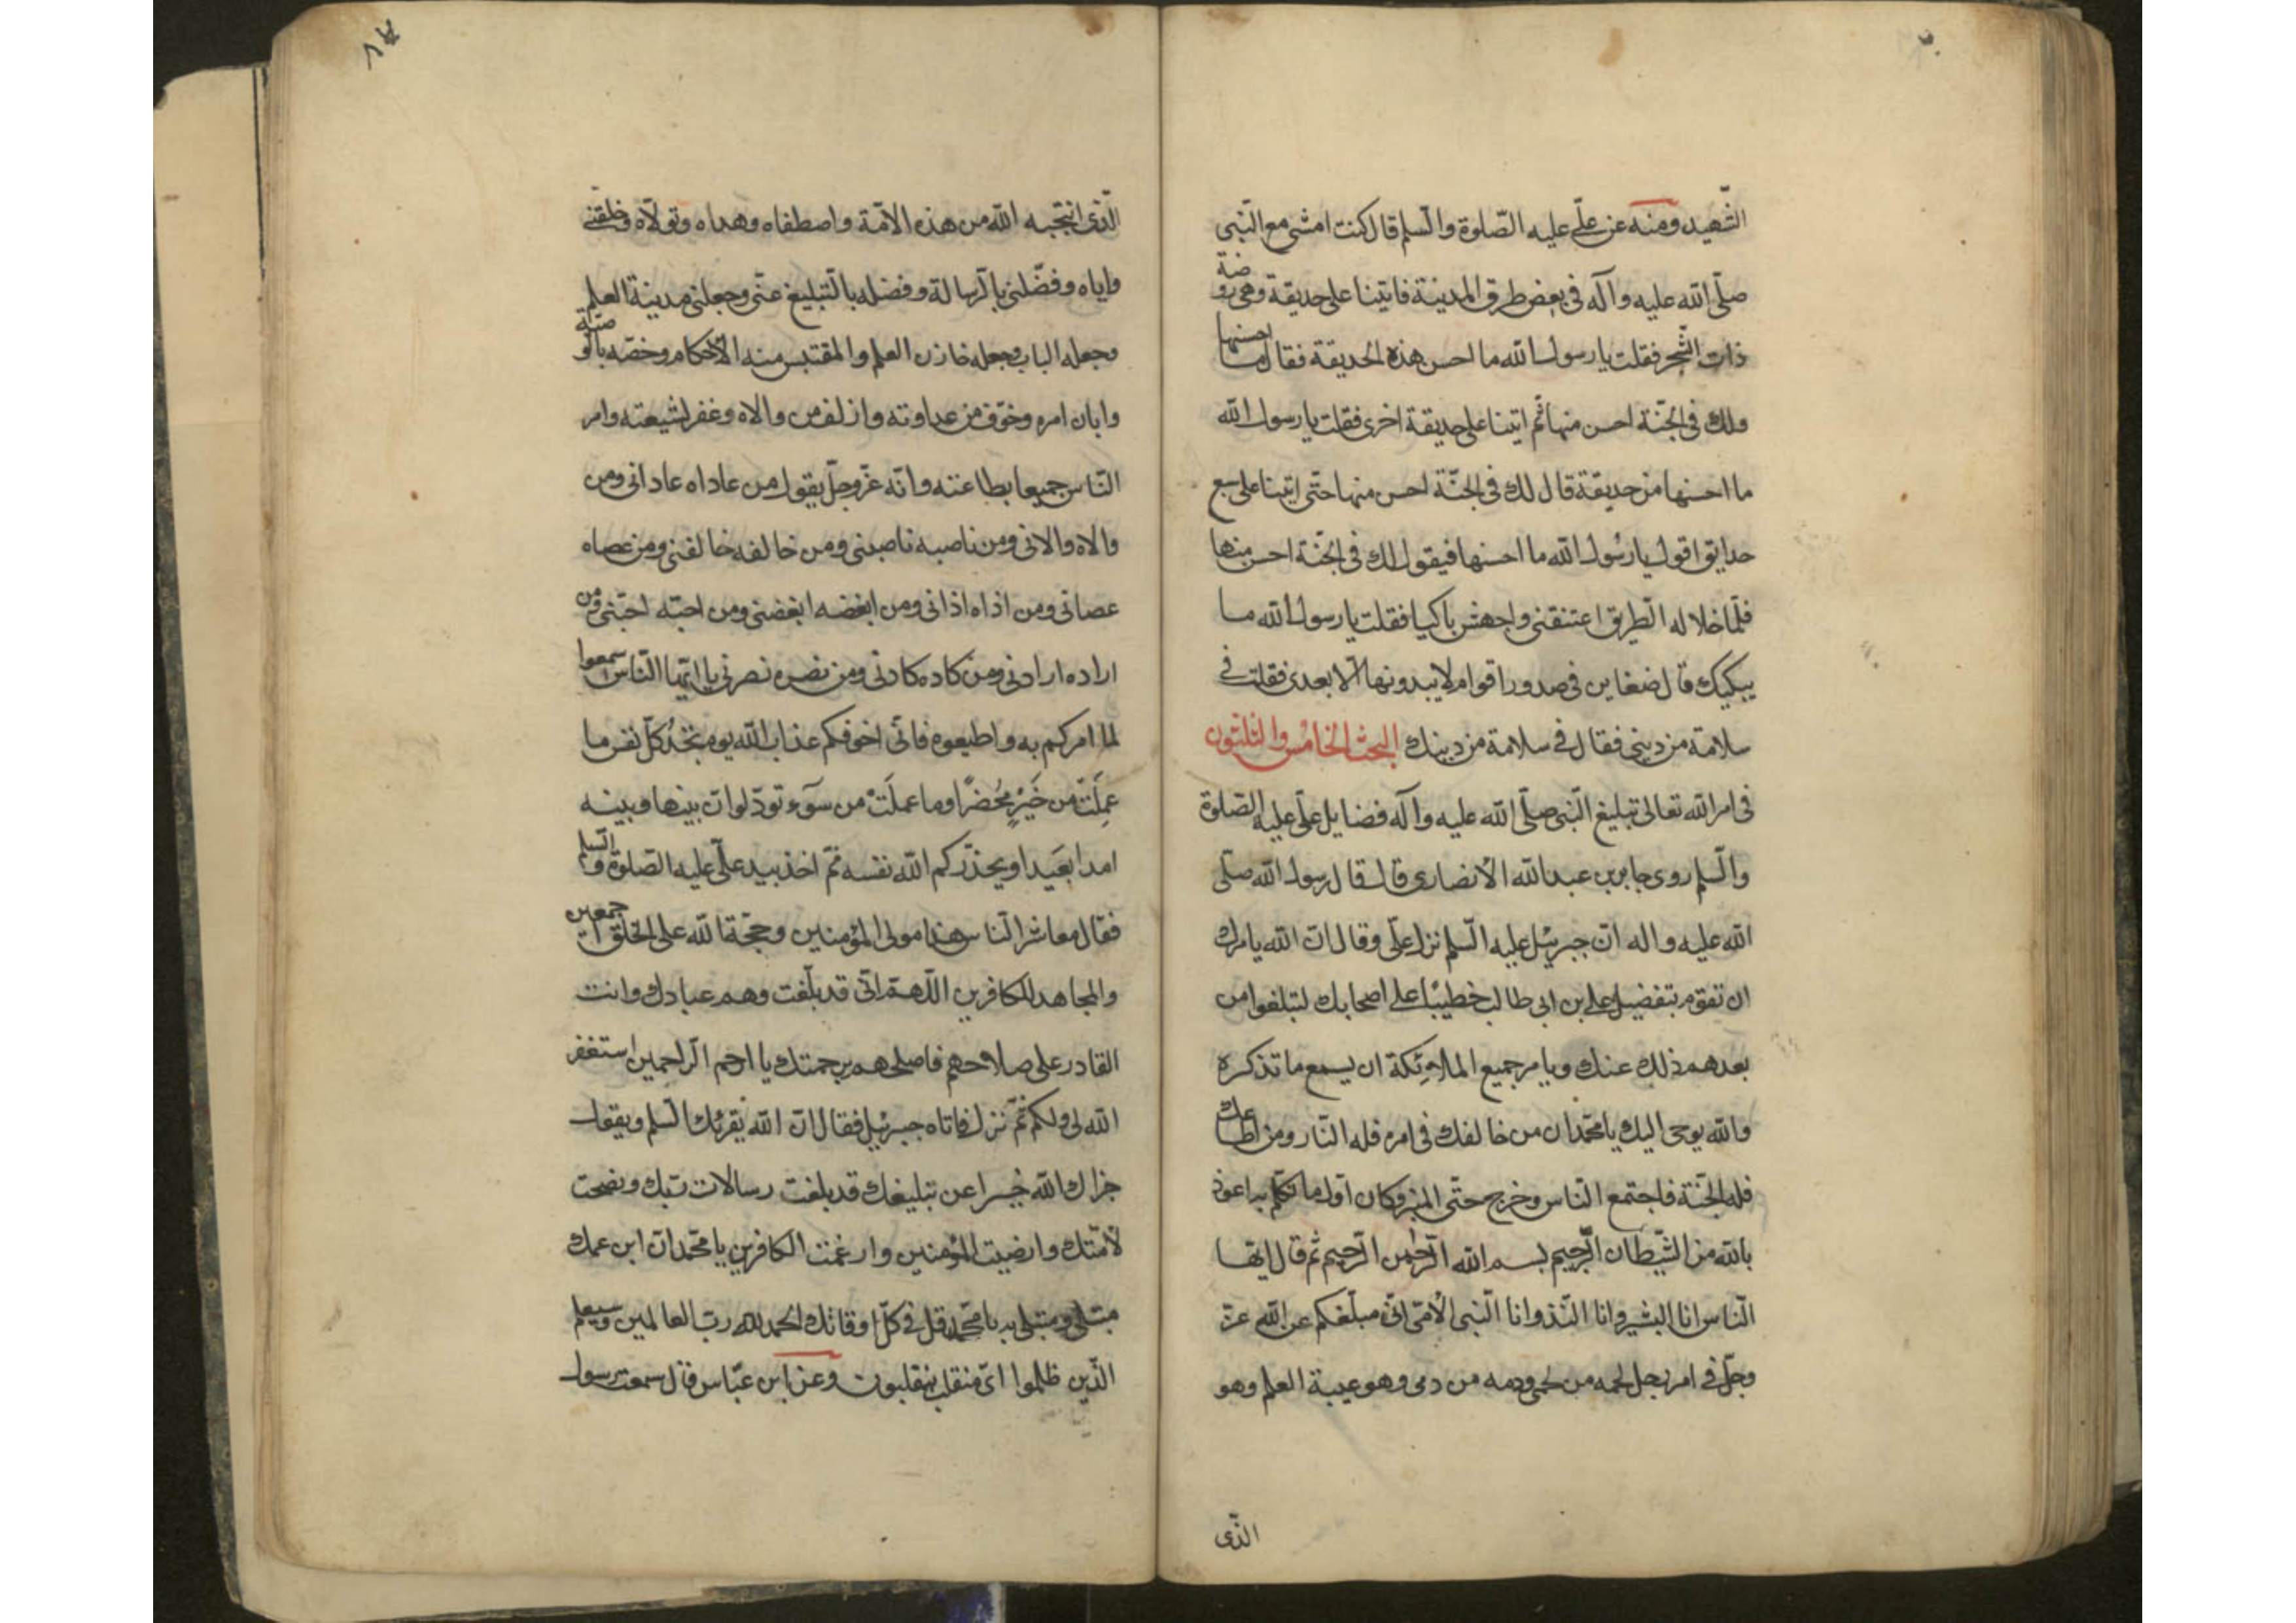 الشّهيد ومنه عن علّى عليه الصّلوة والسّلم قال كنت امشى مع النّبى
صلّى الله عليه وآله فى بعض طرق المدينة فاتينا على حديقة وهى روضة
ذات الشّجر فقلت يا رسول الله ما احسن هذه الحديقة فقال ما احسنها
ولك فى الجنّة احسن منها ثم اتينا على حديقة اخرى فقلت يا رسول الله
ما احسنها من حديقة قال لك فى الجنّة احسن منها حتّى اتينا على سبع
حدايق اقول يا رسول الله ما احسنها فيقول لك فى الجنّة احسن منها
فلمّا خلا له الطريق اعتنقنى واجهش باكيا فقلت يا رسول الله ما
يبكيك قال ضغاين فى صدور اقوام لا يبدونها الّا بعدى فقلت فى
سلامة من دينى فقال فى سلامة من دينك البحث الخامس والثلثون
فى امر الله تعالى تبليغ النّبى صلّى الله عليه وآله فضايل علّى عليه الصّلوة
والسّلم روى جابر بن عبد الله الانصارى قال قال رسول الله صلّى
الله عليه واله انّ جبرئيل عليه السّلم نزل علّى وقال انّ الله يامرك
ان تقوم بتفضيل على بن ابى طالب خطيبا على اصحابك لتبلغوا من
بعدهم ذلك عنك ويامر جميع الملائكة ان يسمع ما تذكره
والله يوحى اليك يا محمّد ان من خالفك فى امره فله النّار ومن اطاعك
فله الجنّة فاجتمع النّاس وخرج حتّى المنبر وكان اوّل ما تكلّم به اعوذ
بالله من الشّيطان الرّجيم بسم الله الرّحمن الرّحيم ثم قال ايّها
النّاس انا البشير وانا النّذ وانا النّبى الامّى انّى مبلّغكم عن الله عزّ
وجلّ فى امر رجل لحمه من لحمى ودمه من دمى وهو عيبة العلم وهو
الذّى
٨٧
الذّى انتجبه الله من هذه الامّة واصطفاه وهداه وتولّاه وخلقنى
واياه وفضّلنى بالرّسالة وفضله بالتّبليغ عنّى وجعلنى مدينة العلم
وجعله الباب وجعله خازن العلم والمقتبس منه الاحكام وخصّه بالوصيّة
وابان امره وخوّف من عداوته وازلف من والاه وغفر لشيعته وامر
النّاس جميعا بطاعته وانّه عزّ وجلّ يقول من عاداه عادانى ومن
والاه والانى ومن ناصبه ناصبنى ومن خالفه خالفنى ومن عصاه
عصانى ومن اذاه اذانى ومن ابغضه ابغضنى ومن احبّه احبّنى ومن
اراده ارادنى ومن كاده كادنى ومن نصره نصرنى يا ايّها النّاس اسمعوا
لما امركم به واطيعوه فانّى اخوفكم عذاب الله يوم تجد كلّ نفس ما
عملت من خير محضرًا وما عملت من سوء تودّ لو انّ بينها وبينه
امدا بعيدا ويحذّركم الله نفسه ثمّ اخذ بيد علّى عليه الصّلوة والسّلم
فقال معاشر النّاس هذا مولى المؤمنين وحجّة الله على الخلق اجمعين
والمجاهد للكافرين اللّهمّ انّى قد بلّغت وهم عبادك وانت
القادر على صلاحهم فاصلحهم برحمتك يا ارحم الرّاحمين استغفر
الله لى ولكم ثمّ نزل فاتاه جبرئيل فقال انّ الله يقرئك السّلم ويقول
جزاك الله خيرا عن تبليغك قد بلغت رسالات ربّك ونصحت
لامّتك وارضيت المؤمنين وارغمت الكافرين يا محمّد انّ ابن عمك
مبتلى ومبتلى به يا محمّد قل فى كلّ اوقاتك الحمد لله ربّ العالمين وسيعلم
الذّين ظلموا اىّ منقلب ينقلبون وعن ابن عبّاس قال سمعت رسول